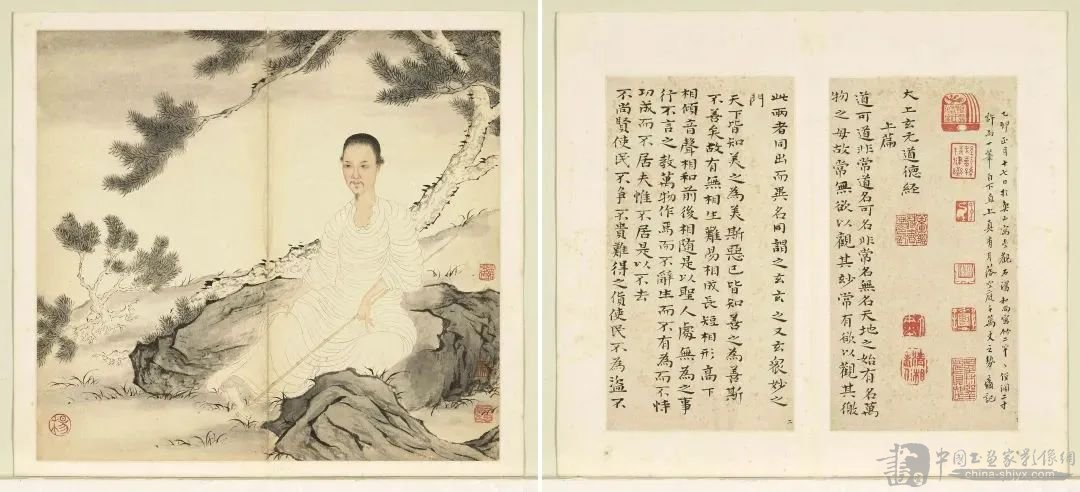 乙卯正月十七日
大上玄元道德經
上篇
道可道非常道名可名非常名無名天地之始有名萬
物之母故常無欲以觀其妙常有欲以觀其徼
此兩者同出而異名同謂之玄玄之又玄衆妙之
門
天下皆知美之為美斯惡已皆知善之為善斯
不善矣故有無相生難易相成長短相形高下
相傾音聲相和前後相隨是以聖人處無為之事
行不言之教萬物作焉而不辭生而不有為而不恃
功成而不居夫惟不居是以不去
不尚賢使民不爭不貴難得之貨使民不為盜不
二
中国书画家影像網
china-shjyx.com